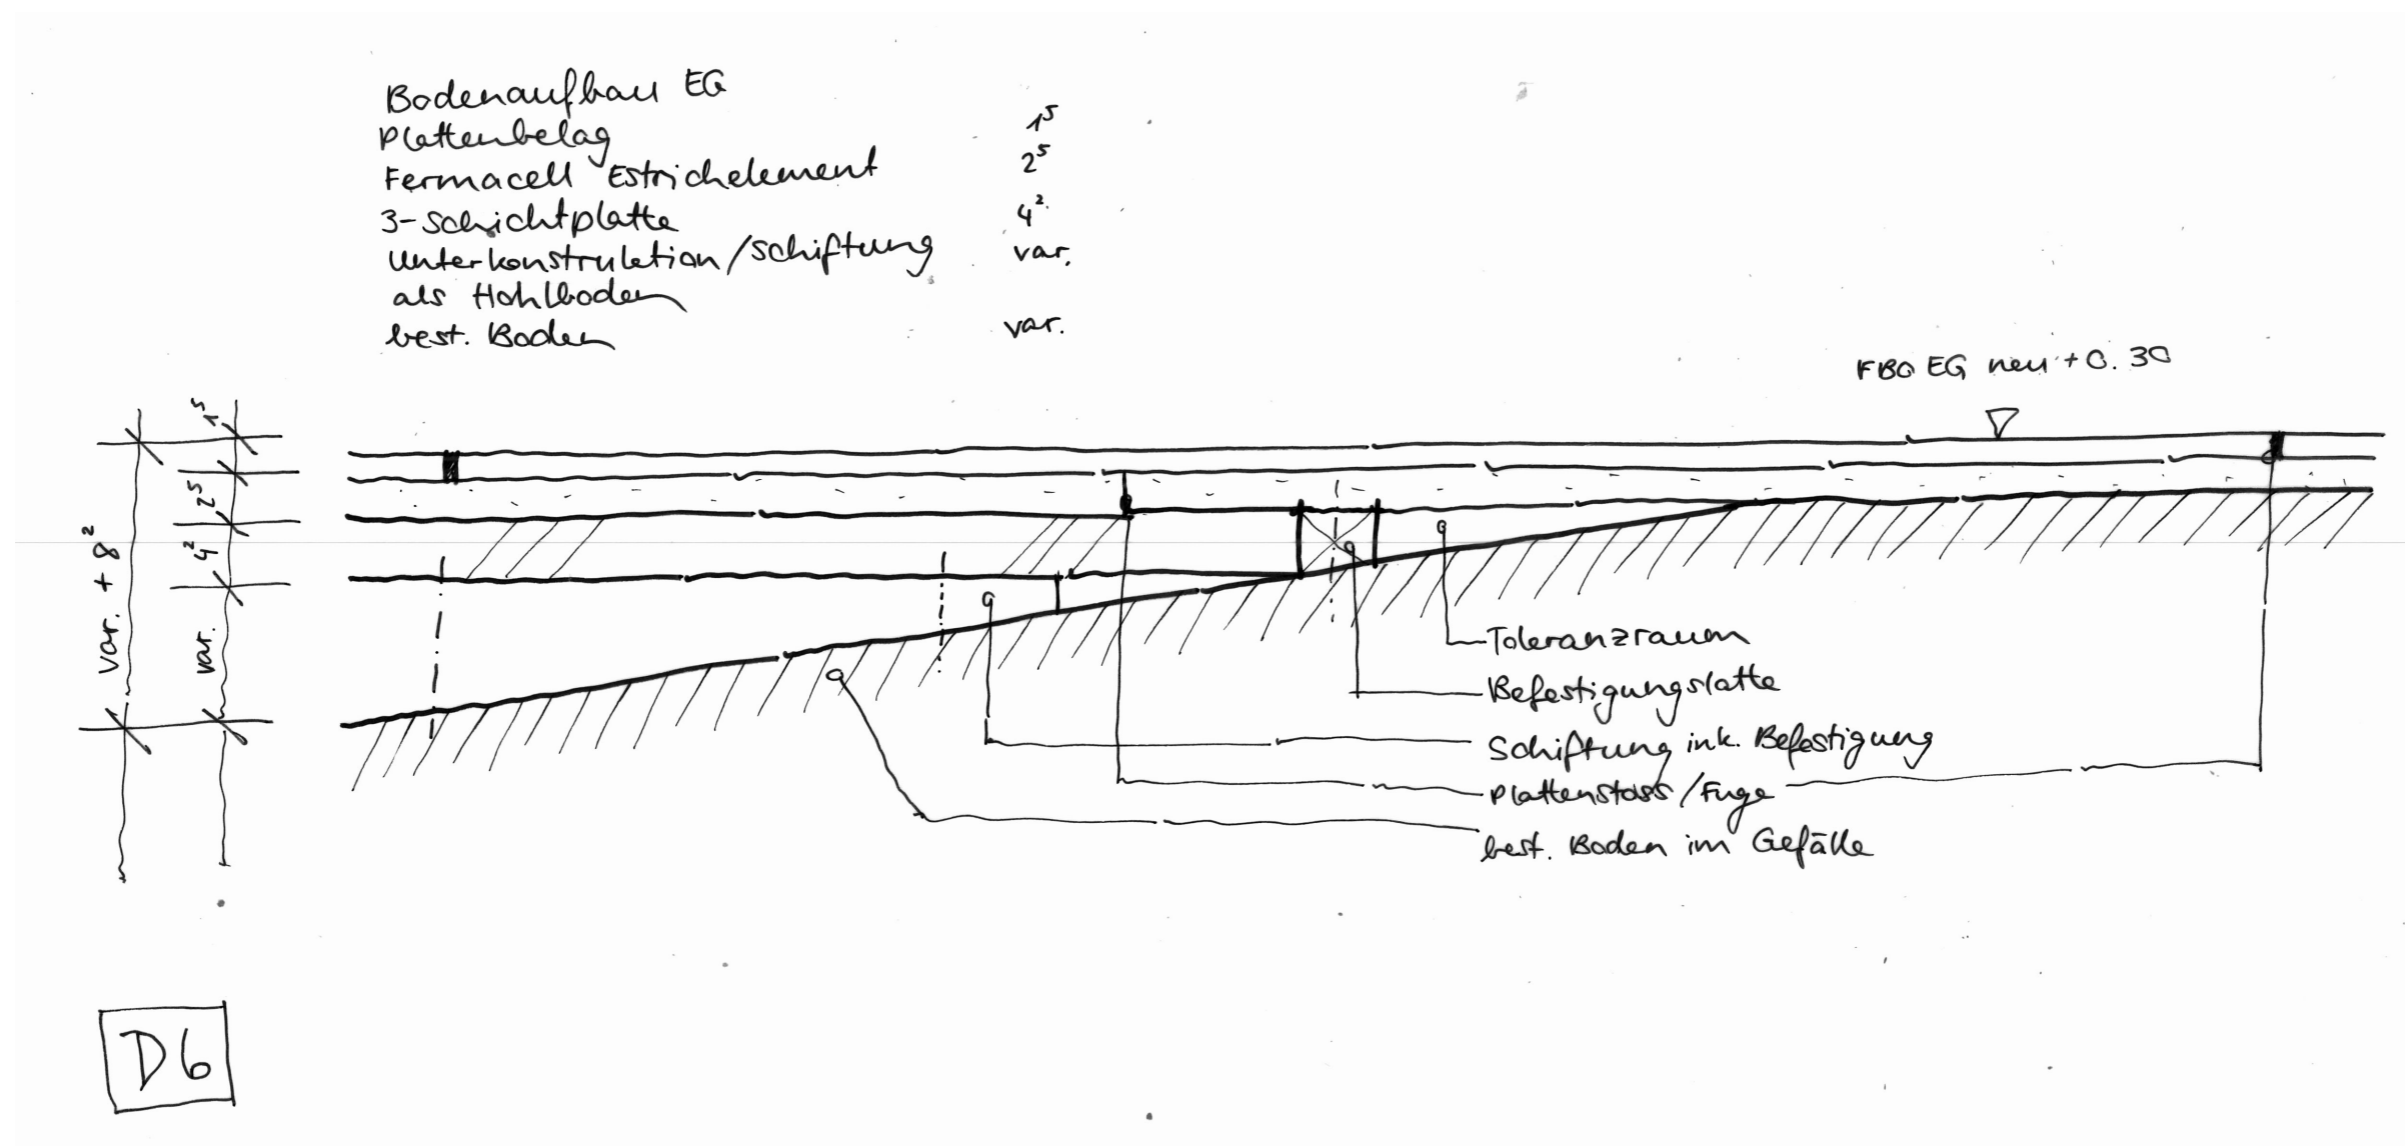 Bodenaufbau EG
Plattenbelag 1⁵
Fermacell Estrichelement 2⁵
3-Schichtplatte 4²
Unterkonstruktion/Schiftung var.
als Hohlboden
best. Boden var.
FBO EG neu +0.30
1⁵
2⁵
4²
var.
var. + 8²
Toleranzraum
Befestigungslatte
Schiftung ink. Befestigung
Plattenstoss/Fuge
best. Boden im Gefälle
D6